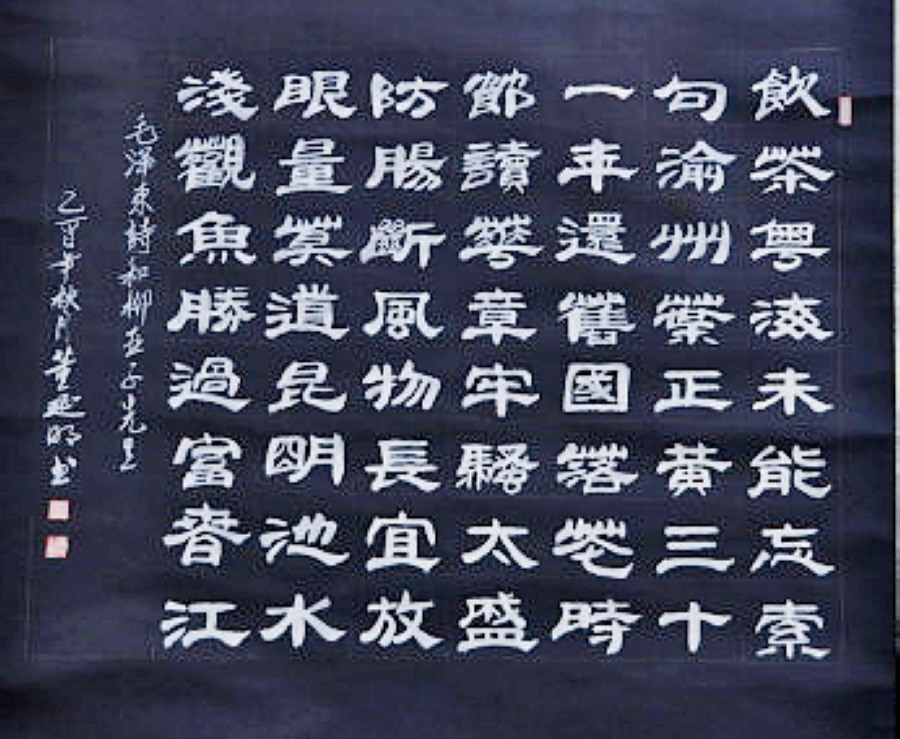 飲茶粤海未能忘索
句渝州葉正黄三十
一年還舊國落花時
節讀華章牢騷太盛
防腸斷風物長宜放
眼量莫道昆明池水
淺觀魚勝過富春江
毛澤東詩和柳亞子先生
乙酉年秋月董延明書